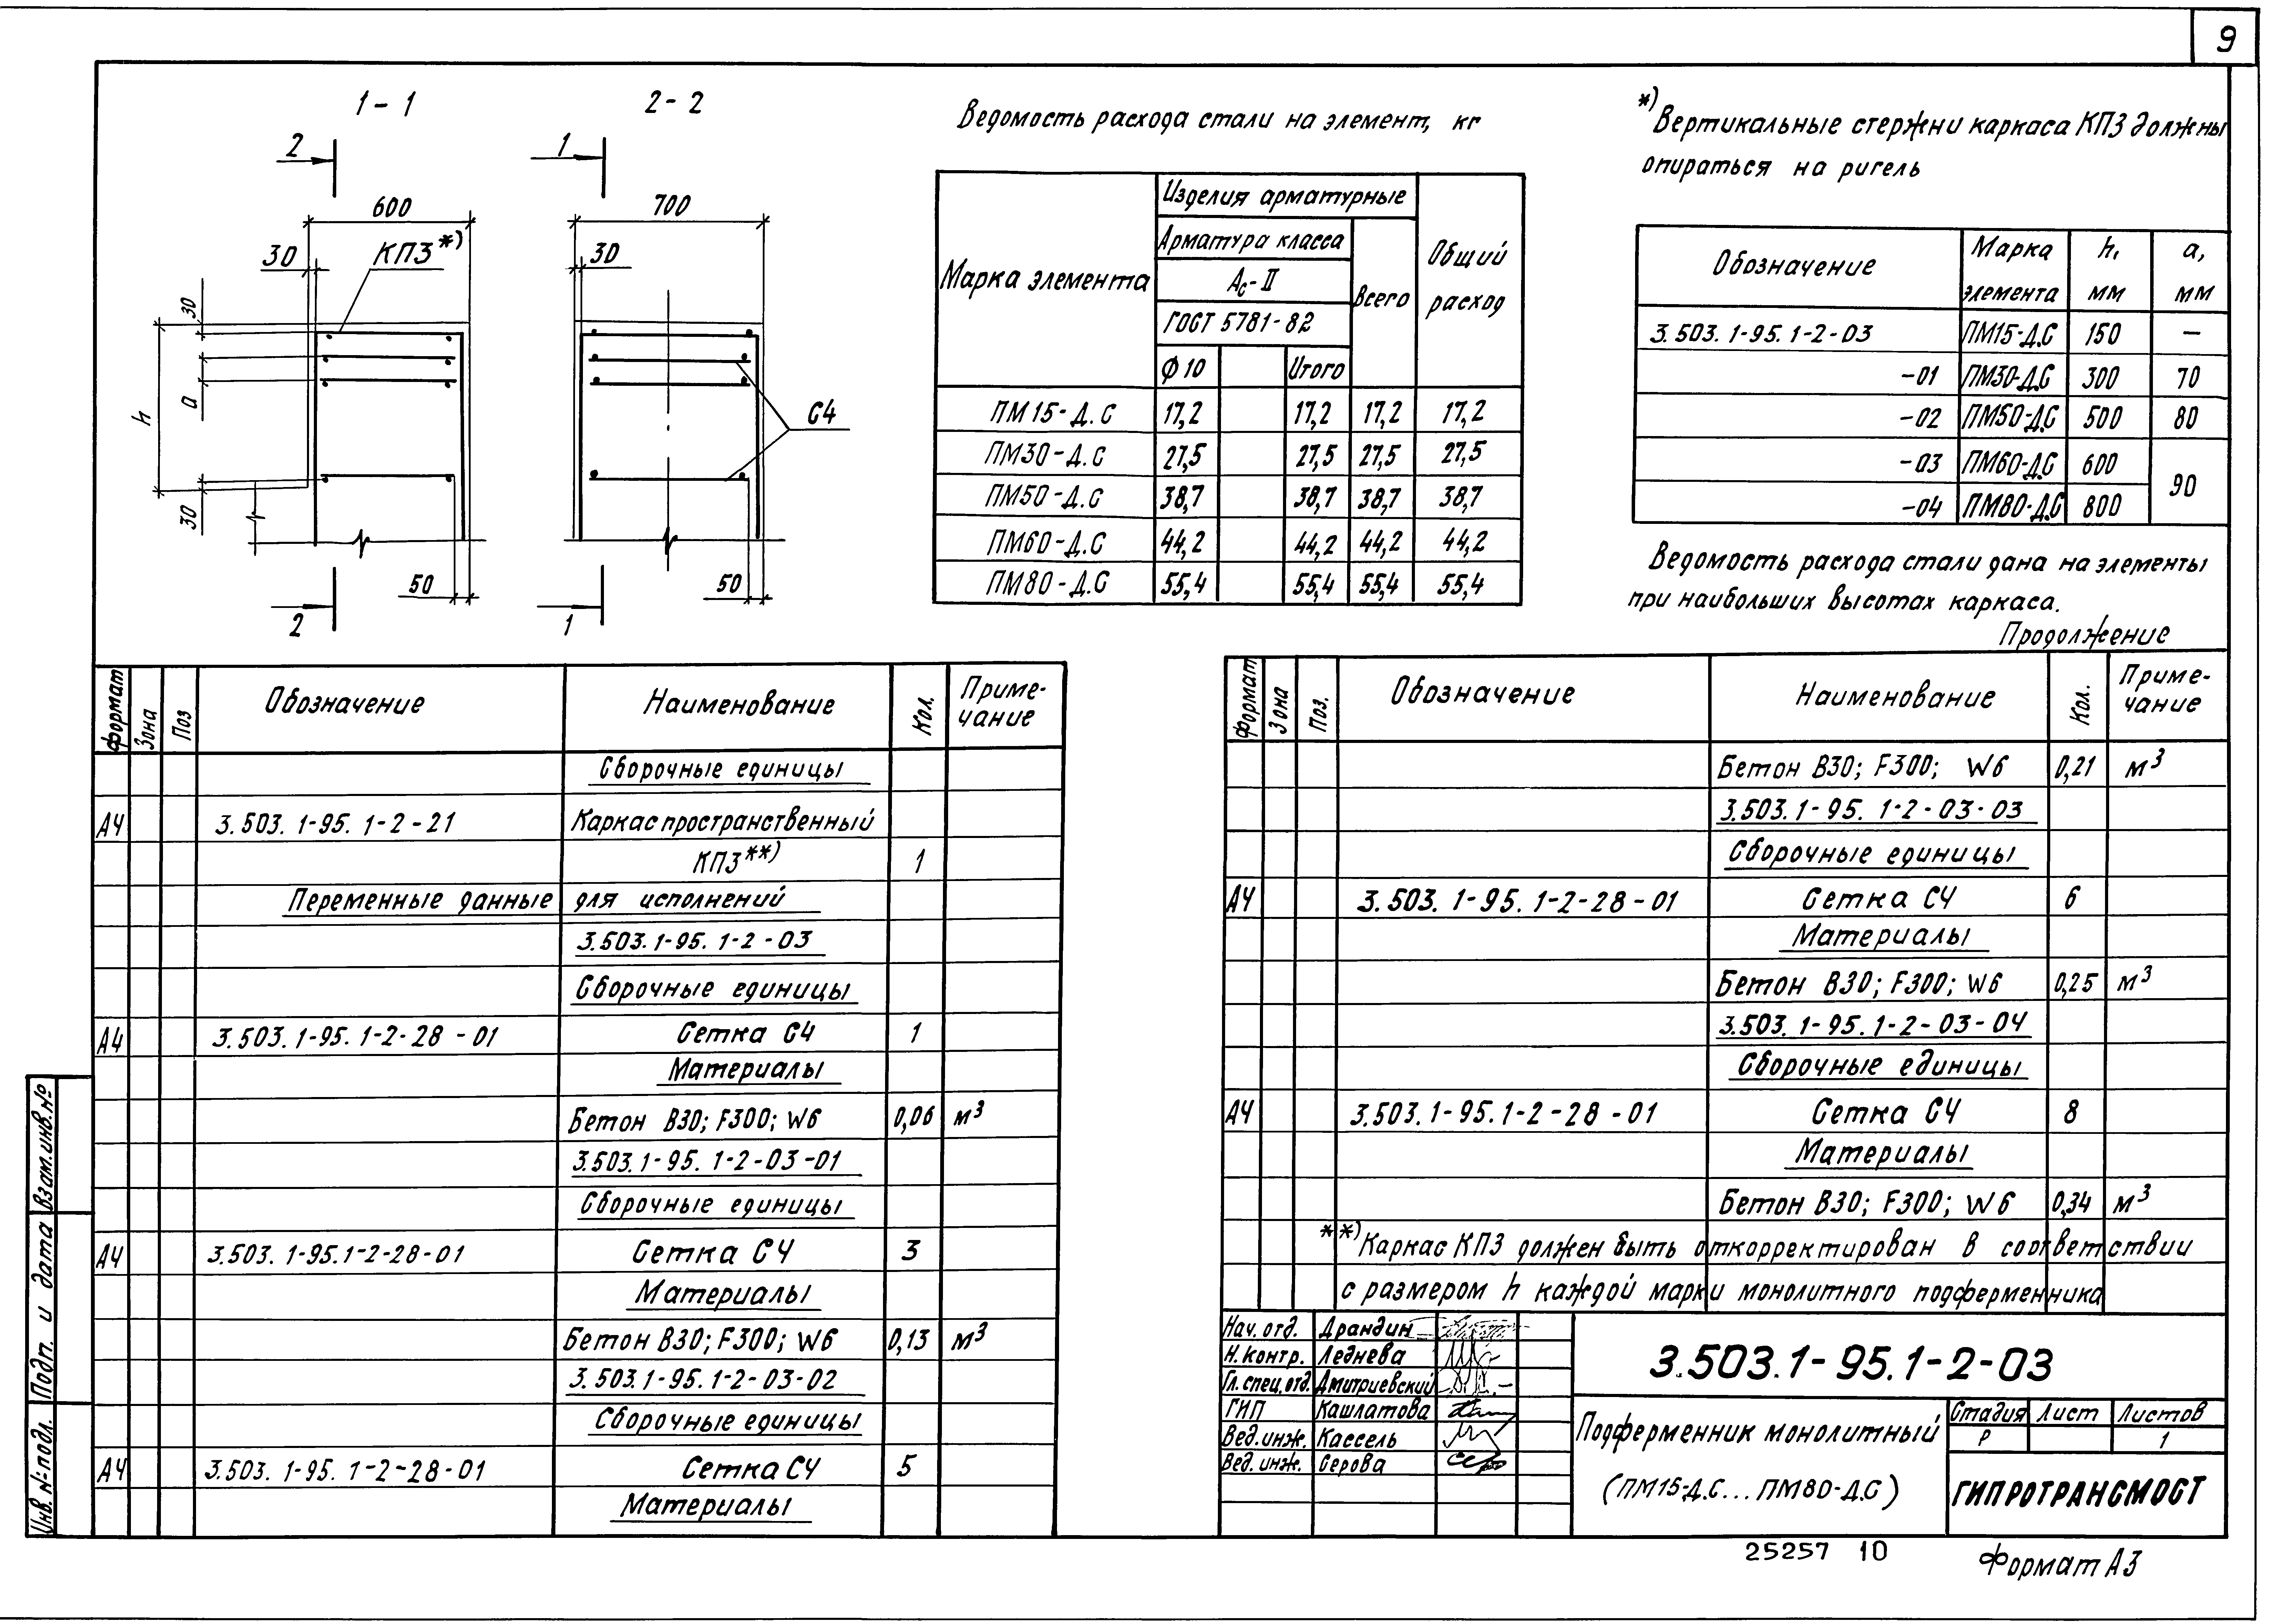 9
1-1
2-2
2
1
600
700
30
КПЗ*)
30
30
a
h
30
С4
50
50
2
1
Ведомость расхода стали на элемент, кг
Марка элемента
Изделия арматурные
Общий расход
Арматура класса
Всего
Ас-II
ГОСТ 5781-82
Ф10 Итого
ПМ15-Д.С 17,2 17,2 17,2 17,2
ПМ30-Д.С 27,5 27,5 27,5 27,5
ПМ50-Д.С 38,7 38,7 38,7 38,7
ПМ60-Д.С 44,2 44,2 44,2 44,2
ПМ80-Д.С 55,4 55,4 55,4 55,4
*) Вертикальные стержни каркаса КПЗ должны
опираться на ригель
Обозначение Марка элемента h, мм a, мм
3.503.1-95.1-2-03 ПМ15-Д.С 150 —
-01 ПМ30-Д.С 300 70
-02 ПМ50-Д.С 500 80
-03 ПМ60-Д.С 600 90
-04 ПМ80-Д.С 800
Ведомость расхода стали дана на элементы
при наибольших высотах каркаса.
Продолжение
Формат Зона Поз Обозначение Наименование Кол. Приме-
чание
Сборочные единицы
А4 3.503.1-95.1-2-21 Каркас пространственный
КПЗ**) 1
Переменные данные для исполнений
3.503.1-95.1-2-03
Сборочные единицы
А4 3.503.1-95.1-2-28-01 Сетка С4 1
Материалы
Бетон В30; F300; W6 0,06 м³
3.503.1-95.1-2-03-01
Сборочные единицы
А4 3.503.1-95.1-2-28-01 Сетка С4 3
Материалы
Бетон В30; F300; W6 0,13 м³
3.503.1-95.1-2-03-02
Сборочные единицы
А4 3.503.1-95.1-2-28-01 Сетка С4 5
Материалы
Формат Зона Поз. Обозначение Наименование Кол. Приме-
чание
Бетон В30; F300; W6 0,21 м³
3.503.1-95.1-2-03-03
Сборочные единицы
А4 3.503.1-95.1-2-28-01 Сетка С4 6
Материалы
Бетон В30; F300; W6 0,25 м³
3.503.1-95.1-2-03-04
Сборочные единицы
А4 3.503.1-95.1-2-28-01 Сетка С4 8
Материалы
Бетон В30; F300; W6 0,34 м³
**) Каркас КПЗ должен быть откорректирован в соответствии
с размером h каждой марки монолитного подферменника
Нач. отд. Драндин
Н. контр. Леднева
Гл. спец. отд. Дмитриевский
ГИП Кашлатова
Вед. инж. Кассель
Вед. инж. Серова
3.503.1-95.1-2-03
Подферменник монолитный
(ПМ15-Д.С...ПМ80-Д.С)
Стадия Лист Листов
Р 1
ГИПРОТРАНСМОСТ
Взам. инв. №
Подп. и дата
Инв. № подл.
25257 10
Формат А3